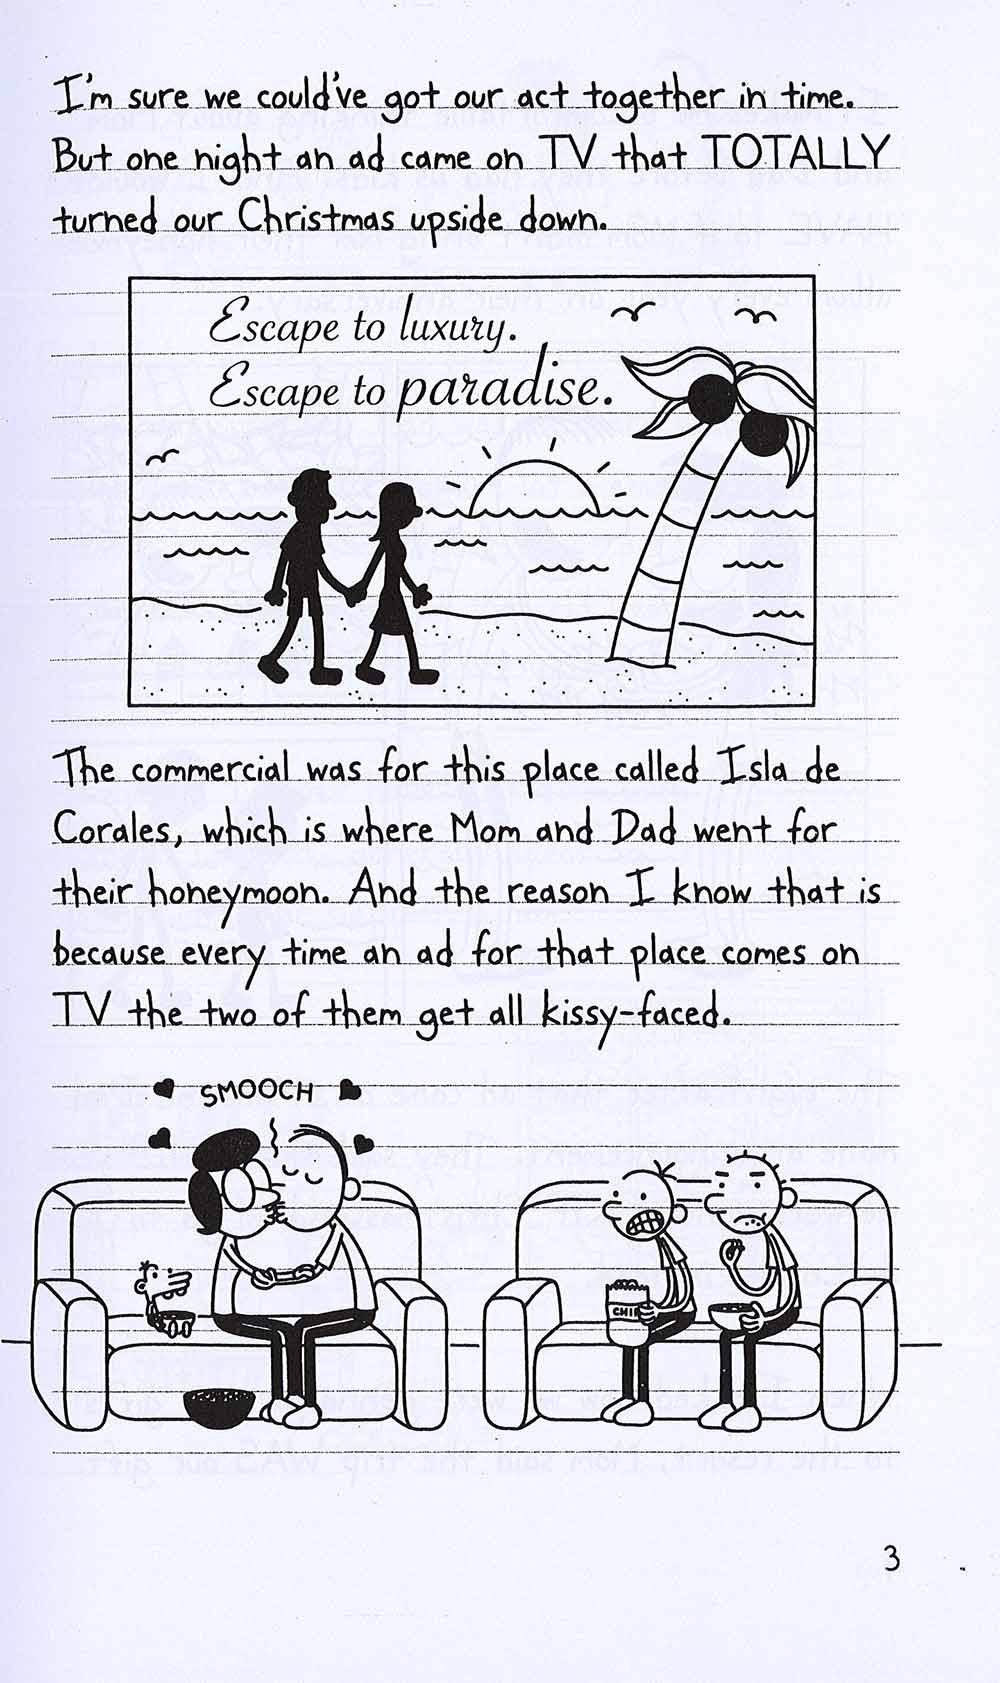 I'm sure we could've got our act together in time.
But one night an ad came on TV that TOTALLY
turned our Christmas upside down.
Escape to luxury.
Escape to paradise.
The commercial was for this place called Isla de
Corales, which is where Mom and Dad went for
their honeymoon. And the reason I know that is
because every time an ad for that place comes on
TV the two of them get all kissy-faced.
SMOOCH
CHIP
3